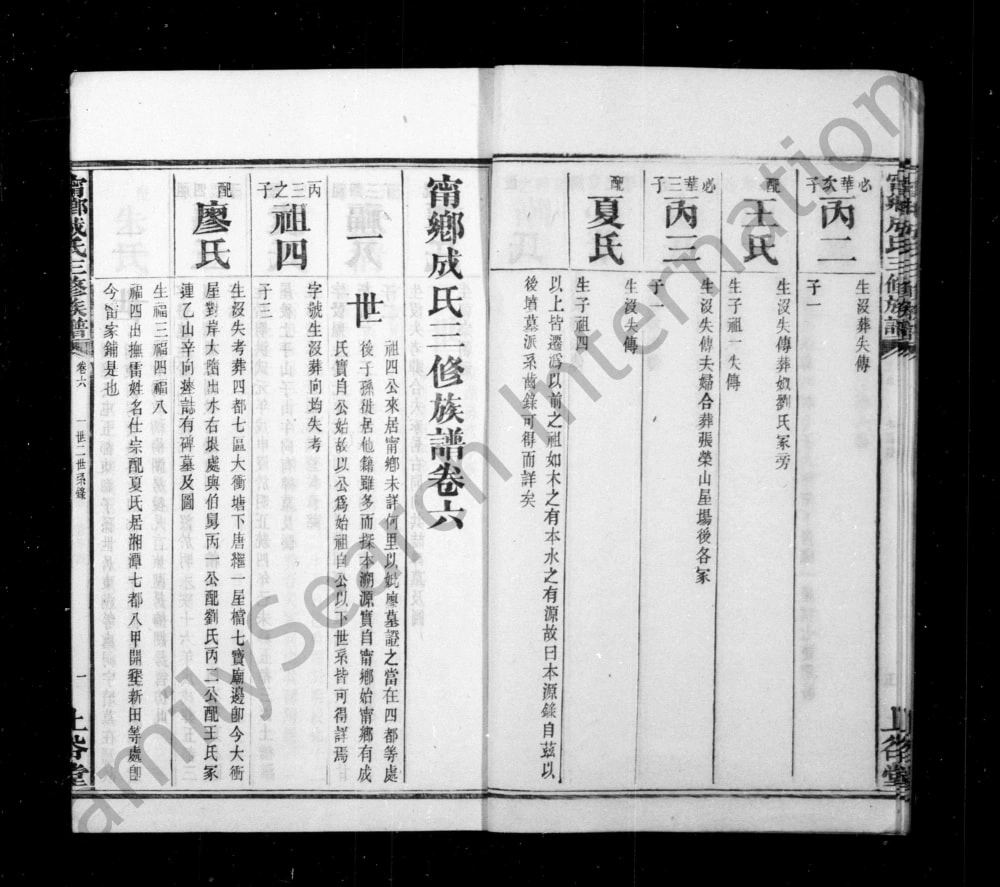 甯鄉成氏三修族譜
必華次子
丙二
生沒葬失傳
子一
配
王氏
生沒失傳葬奴劉氏冢旁
生子祖一失傳
必華三子
丙三
生沒失傳夫婦合葬張榮山屋場後各冢
子一
配
夏氏
生沒失傳
生子祖四
以上皆遷潙以前之祖如木之有本水之有源故曰本源錄自茲以
後墳墓派系茜錄可得而詳矣
甯鄉成氏三修族譜卷六
一世
祖四公來居甯鄉未詳何里以妣廖墓證之當在四都等處
後子孫徙居他籍雖多而探本溯源實自甯鄉始甯鄉有成
氏實自公始故以公為始祖自公以下世系皆可得詳焉
丙三之子
祖四
字號生沒葬向均失考
子三
配
廖氏
生沒失考葬四都七區大衝塘下唐權一星檔七寶廟邊卽今大衝
屋對岸大路出水右掀處與伯舅丙二公配劉氏丙二公配王氏冢
連乙山辛向葬誌有碑墓及圖
生福三福四福八
福四出撫雷姓名仕宗配夏氏居湘潭七都八甲開壑新田等處卽
今雷家鋪是也
甯鄉成氏三修族譜
卷六
一世二世系錄
一
上谷堂
FamilySearch International